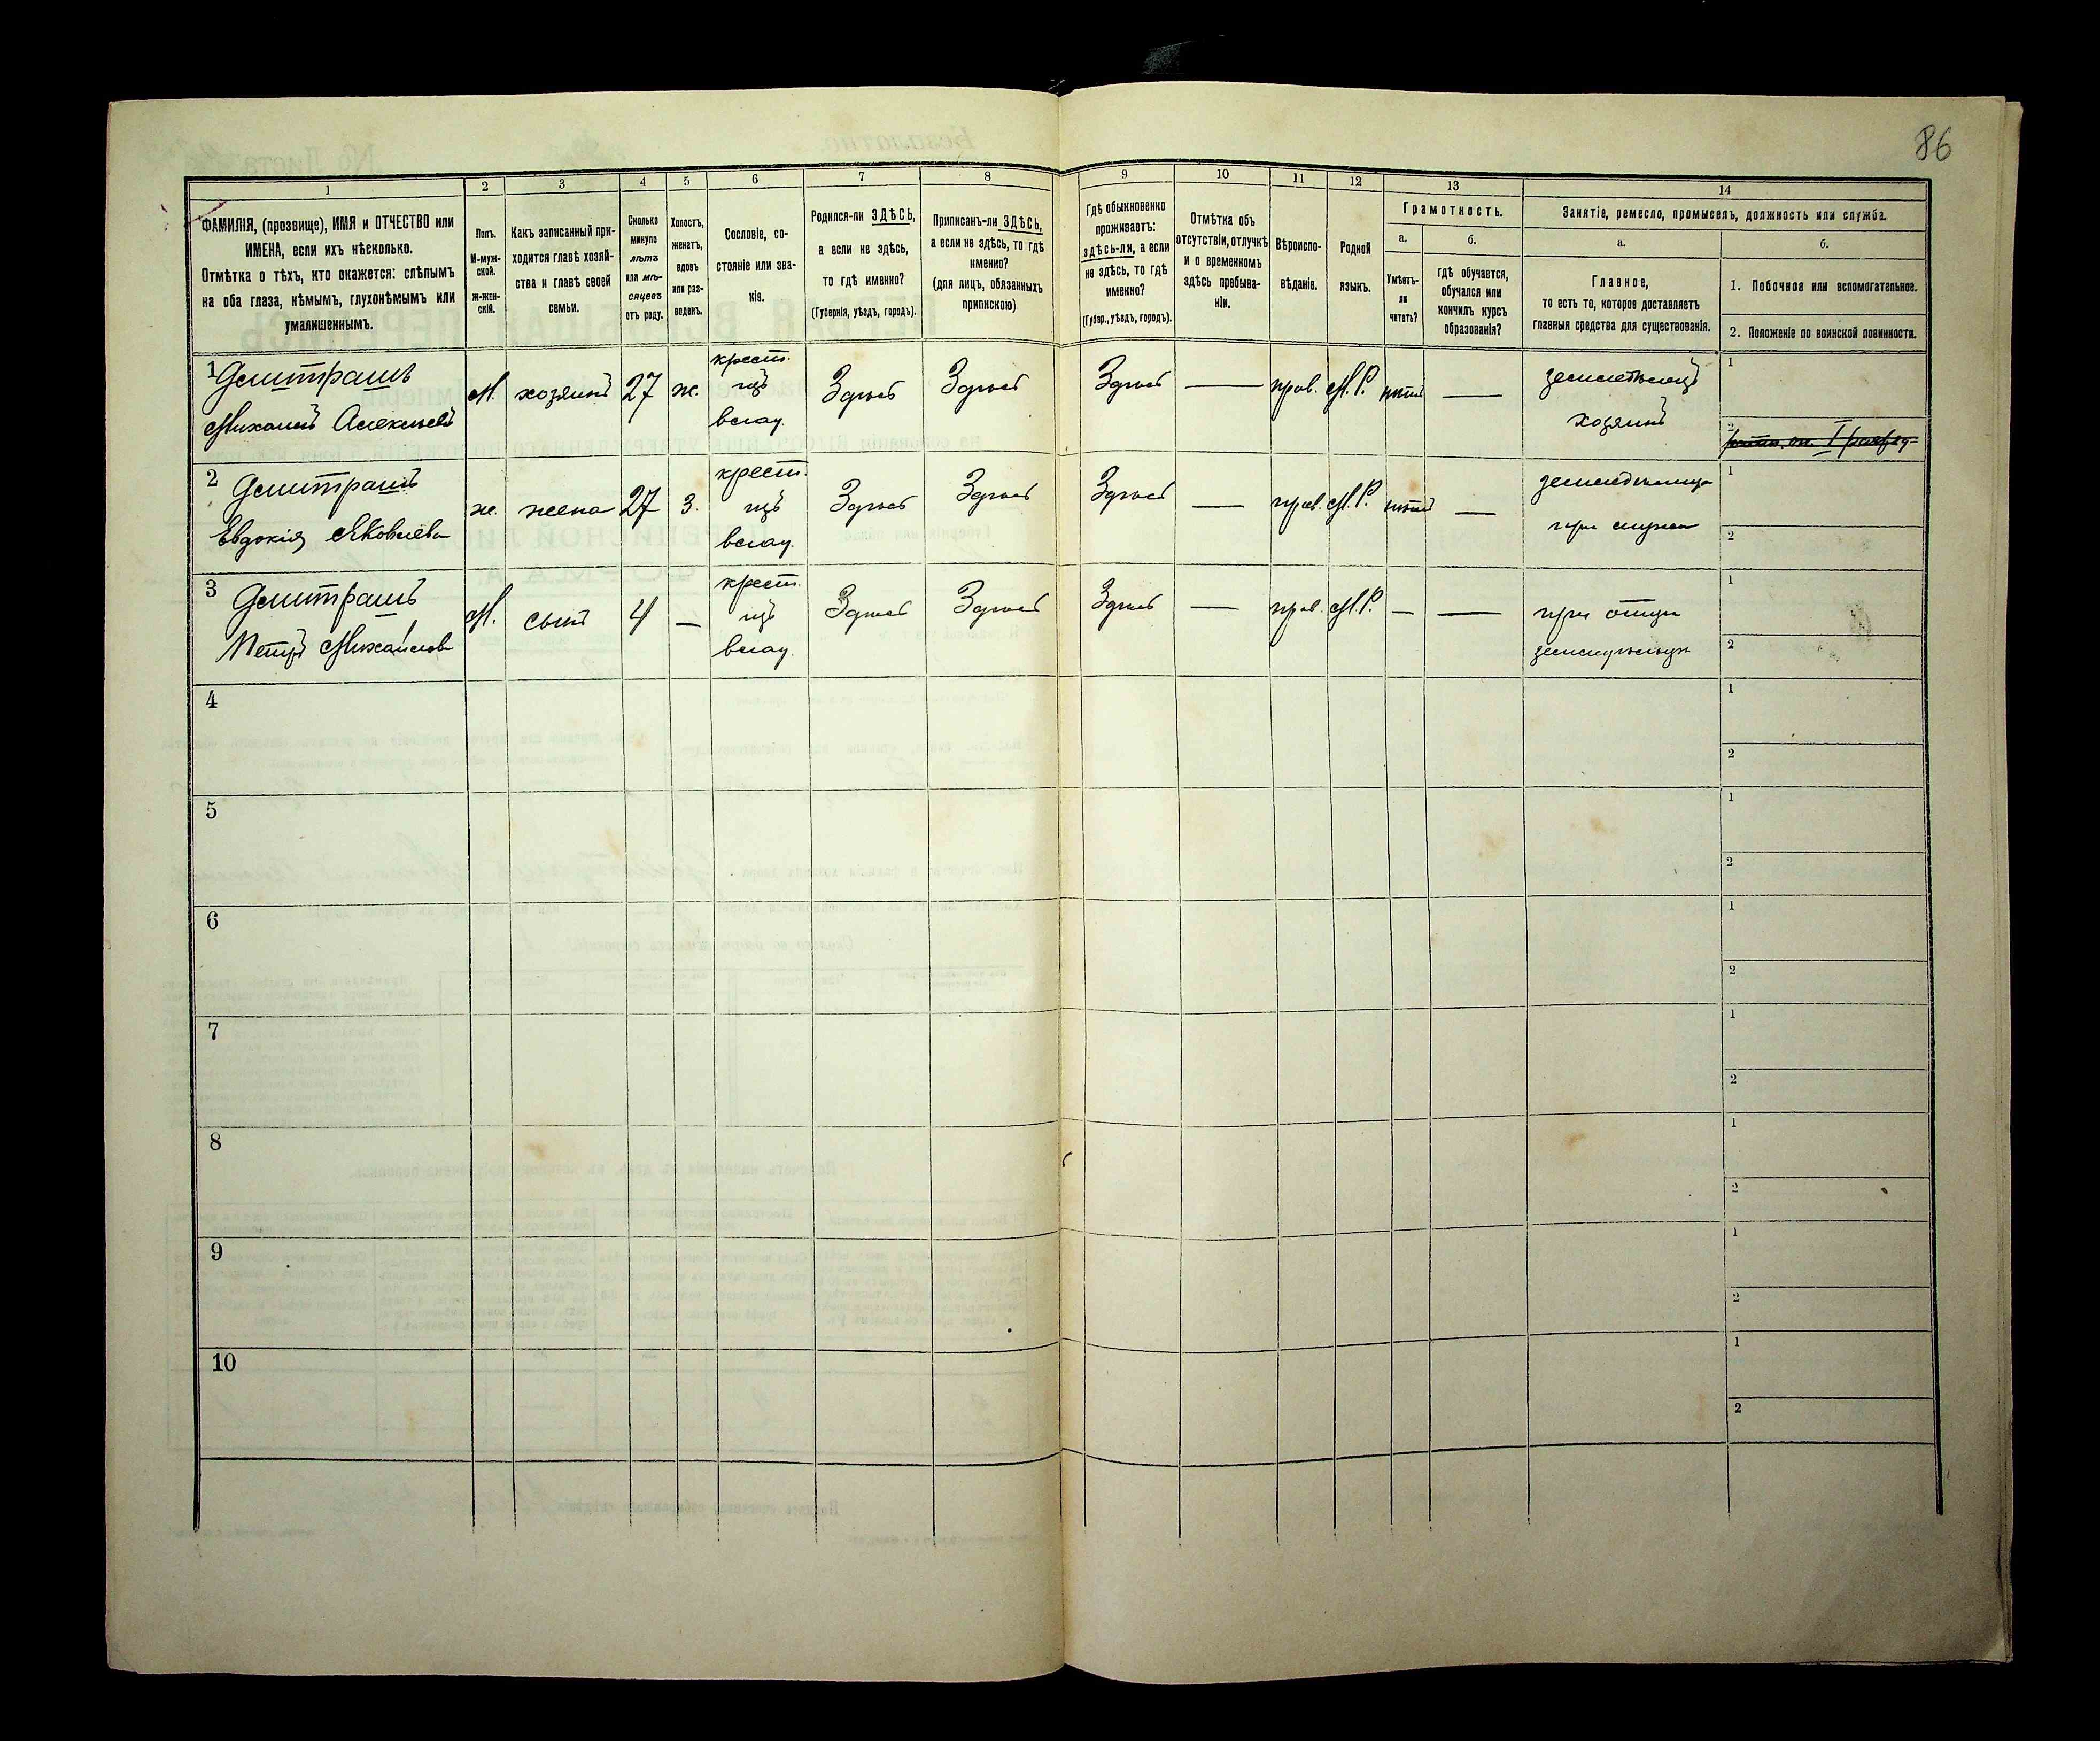 86
1
2
3
4
5
6
7
8
9
10
11
12
13
14
ФАМИЛІЯ, (прозвище), ИМЯ и ОТЧЕСТВО или
ИМЕНА, если ихъ нѣсколько.
Отмѣтка о тѣхъ, кто окажется: слѣпымъ
на оба глаза, нѣмымъ, глухонѣмымъ или
умалишеннымъ.
Полъ.
М-муж-
ской.
ж-жен-
скій.
Какъ записанный при-
ходится главѣ хозяй-
ства и главѣ своей
семьи.
Сколько
минуло
лѣтъ
или мѣ-
сяцевъ
отъ роду.
Холостъ,
женатъ,
вдовъ
или раз-
веденъ.
Сословіе, со-
стояніе или зва-
ніе.
Родился-ли ЗДѢСЬ,
а если не здѣсь,
то гдѣ именно?
(Губернія, уѣздъ, городъ).
Приписанъ-ли ЗДѢСЬ,
а если не здѣсь, то гдѣ
именно?
(для лицъ, обязанныхъ
припискою)
Гдѣ обыкновенно
проживаетъ:
здѣсь-ли, а если
не здѣсь, то гдѣ
именно?
(Губер., уѣздъ, городъ).
Отмѣтка объ
отсутствіи, отлучкѣ
и о временномъ
здѣсь пребыва-
ніи.
Вѣроиспо-
вѣданіе.
Родной
языкъ.
Грамотность.
а.
Умѣетъ-
ли
читать?
б.
гдѣ обучается,
обучался или
кончилъ курсъ
образованія?
Занятіе, ремесло, промыселъ, должность или служба.
а.
Главное,
то есть то, которое доставляетъ
главныя средства для существованія.
б.
1. Побочное или вспомогательное.
2. Положеніе по воинской повинности.
1
Демитрашъ
Михаилъ Алексѣевъ
М.
хозяинъ
27
ж.
крест.
изъ
влад.
Здѣсь
Здѣсь
Здѣсь
—
прав.
М. Р.
нѣтъ
—
хозяинъ
1
2
I разряд
2
Демитрашъ
Евдокія Яковлева
ж.
жена
27
З.
крест.
изъ
влад.
Здѣсь
Здѣсь
Здѣсь
—
прав.
М. Р.
нѣтъ
—
при мужѣ
1
2
3
Демитрашъ
Петръ Михайловъ
М.
сынъ
4
—
крест.
изъ
влад.
Здѣсь
Здѣсь
Здѣсь
—
прав.
М. Р.
—
—
при отцѣ
земледѣльцѣ
1
2
4
1
2
5
1
2
6
1
2
7
1
2
8
1
2
9
1
2
10
1
2